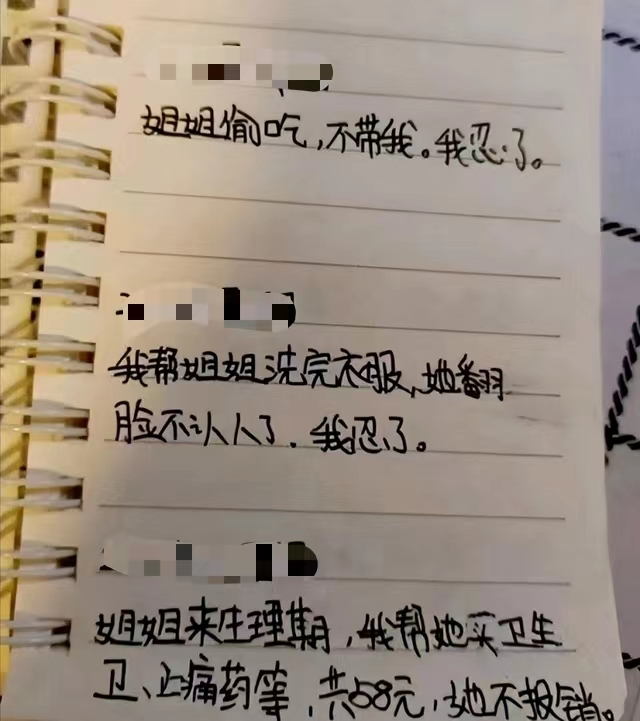 姐姐偷吃,不带我。我忍了。
我帮姐姐洗完衣服,她翻
脸不认人了.我忍了。
姐姐来生理期,我帮她买卫生
卫、止痛药等,共58元,她不报销。